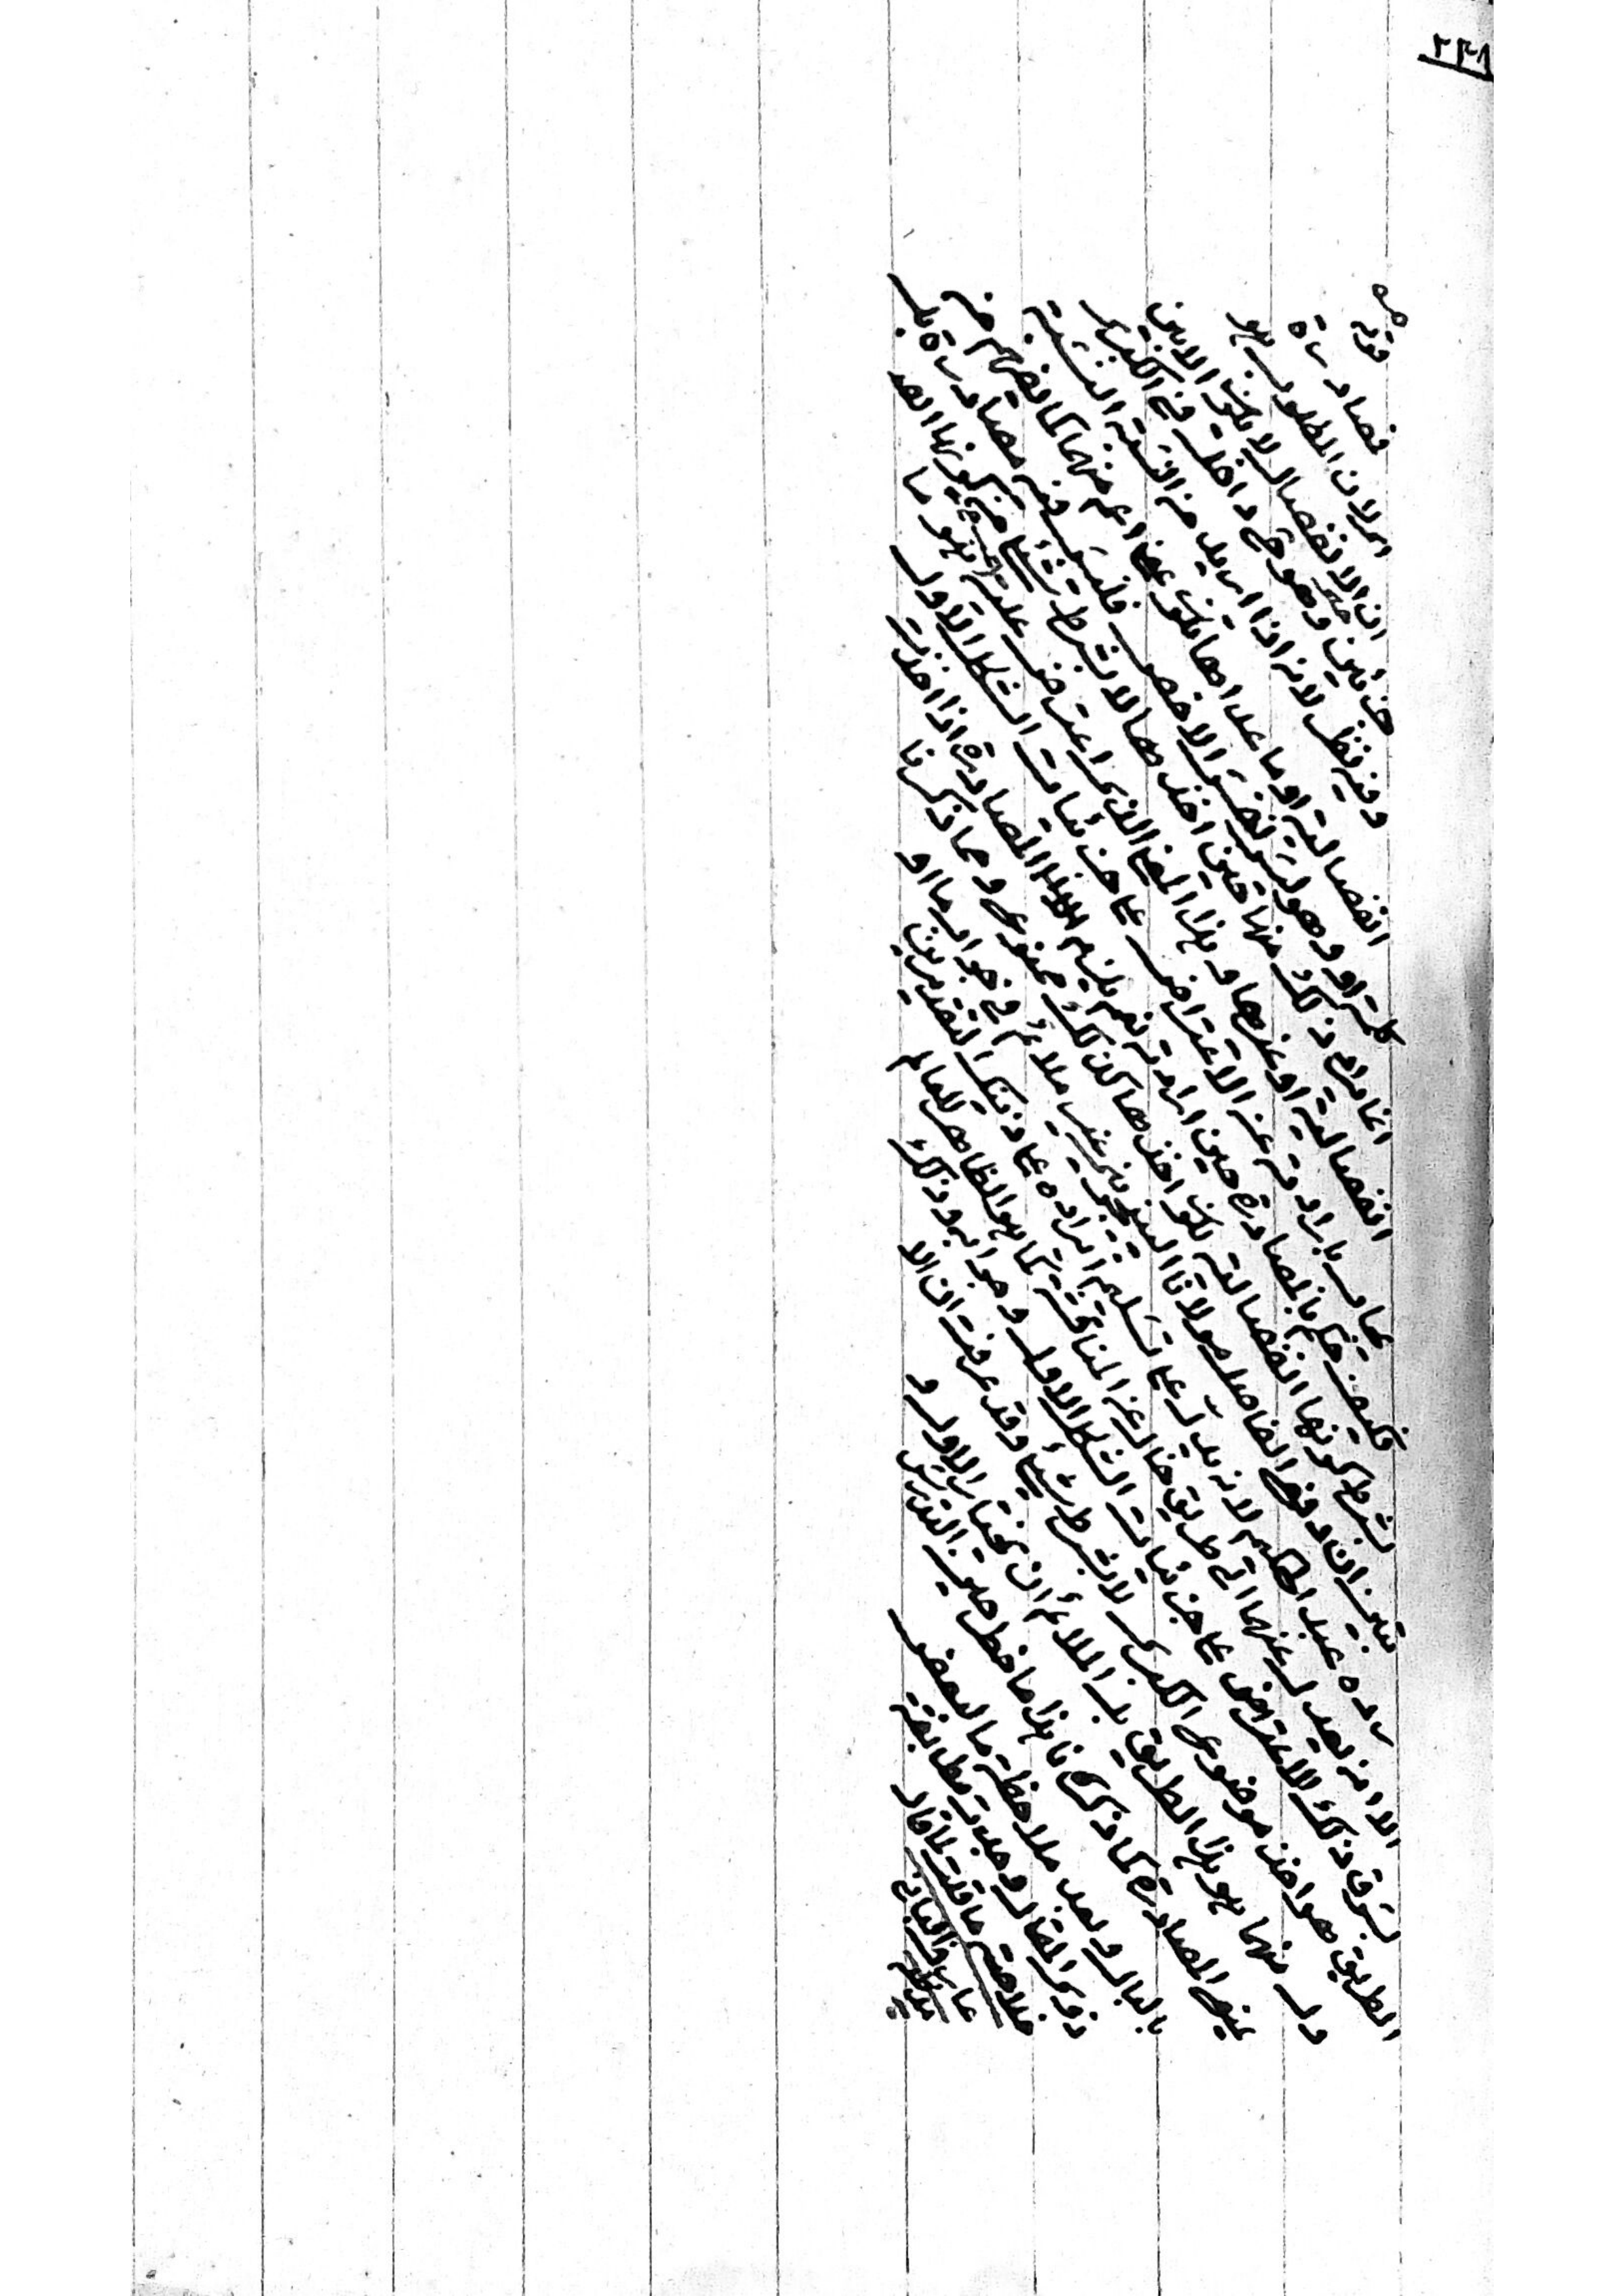 ٢٢١
قوله
مصادرة
اي لان المطلوب هو
ان الانفصال لا يكون الا بين
جزئين وهو داخل في الكبرى
وفيه نظر لانه اذا اريد من النسبة النسبة
انفصالية او ما عداها يكون اعم منهما كما يفهم من
وهو ليس بنفس الاخص فليس فيه مصادرة بل
انما يرد ذلك منها حين اخذها لا بشرط شئ من كونها
انفصالية او غيرها وهذا المعنى الذي اعترض عليه هو ما
بايراده عن الاعتراض على جزئيات الشكل الاول
فكيف حكم بالمصادرة حين ارادته نعم يلزم المصادرة اذا اخذت
بشرط كونها انفصالية لكون اخذها كذلك ممنوع ومما ذكرنا
تبين ان دفع الفاضل مولانا غير ملائم في جواب ما او
رده عبد الحكيم لانه يدل على تسليم ايراده على ذينك التقديرين
الا انه يعدل عنهما الى طريق خال عن المناقشة كما هو الظاهر للعالم
بسوق ذلك الاعتراض على جزئيات الشكل الاول وجوابه وذلك
الطريق هو اخذ موضوع الكبرى لا بشرط شئ وقد عرفت ان الا
ول منهما هو هذا الطريق بل الملائم ان يختار الاول و
يمنع المصادرة كما ذكرنا هذا ما خطر حين التدريس
بالبال وبعد ملاحظة ما لبعض
ذوي المقال وجدته مطابقة
خلاصة ما قلت لما قال